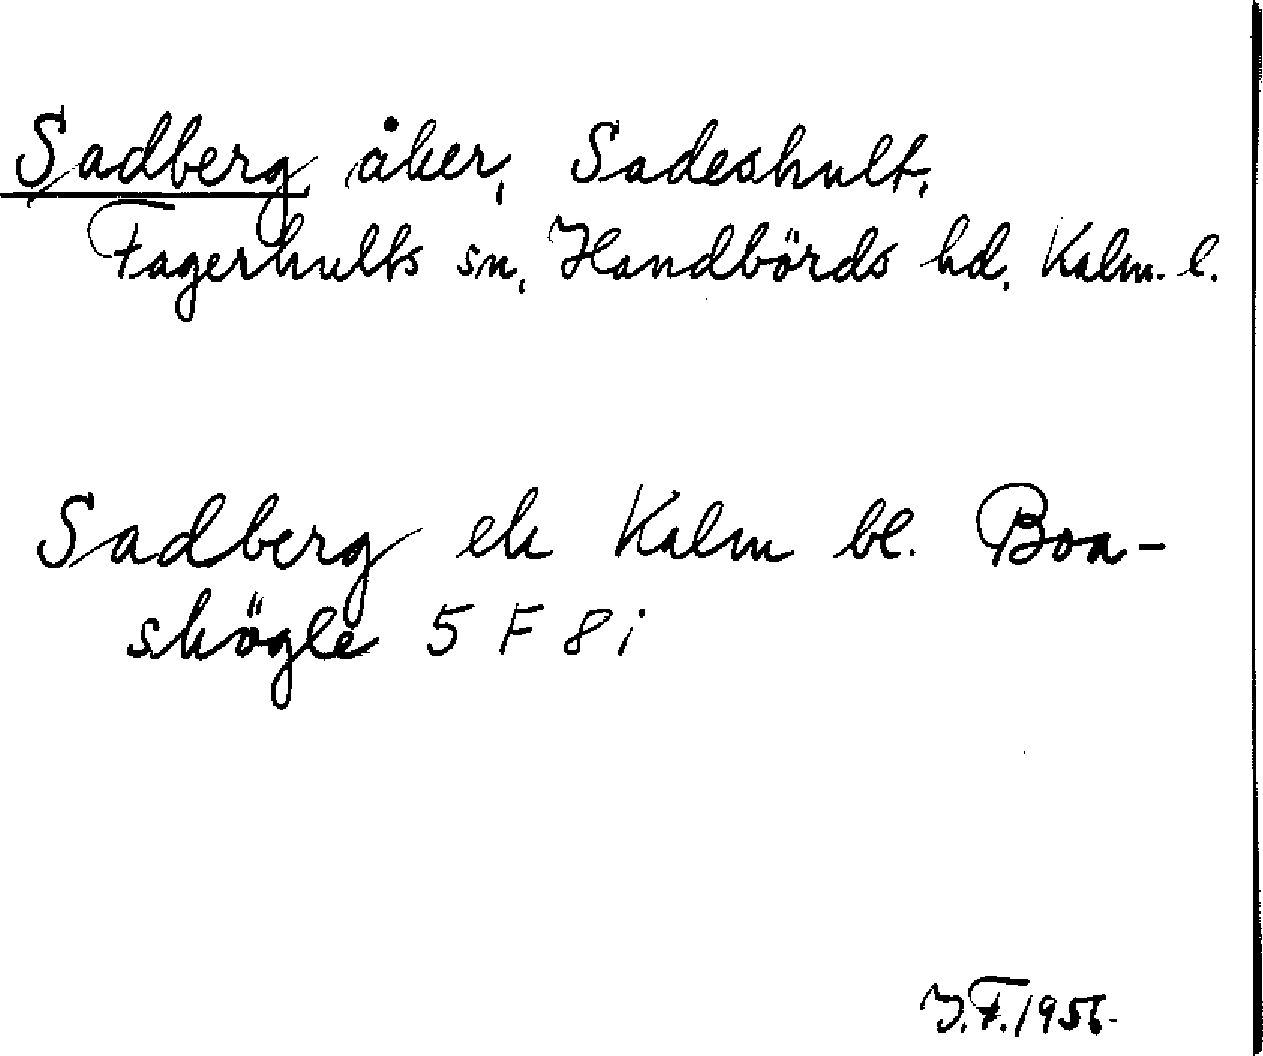 Sadberg, åker, Sadeshult,
Fagerhults sn, Handbörds hd, Kalm. l.
Sadberg ek Kalm bl. Boa-
skögle 5 F 8 i
J.F. 1956.